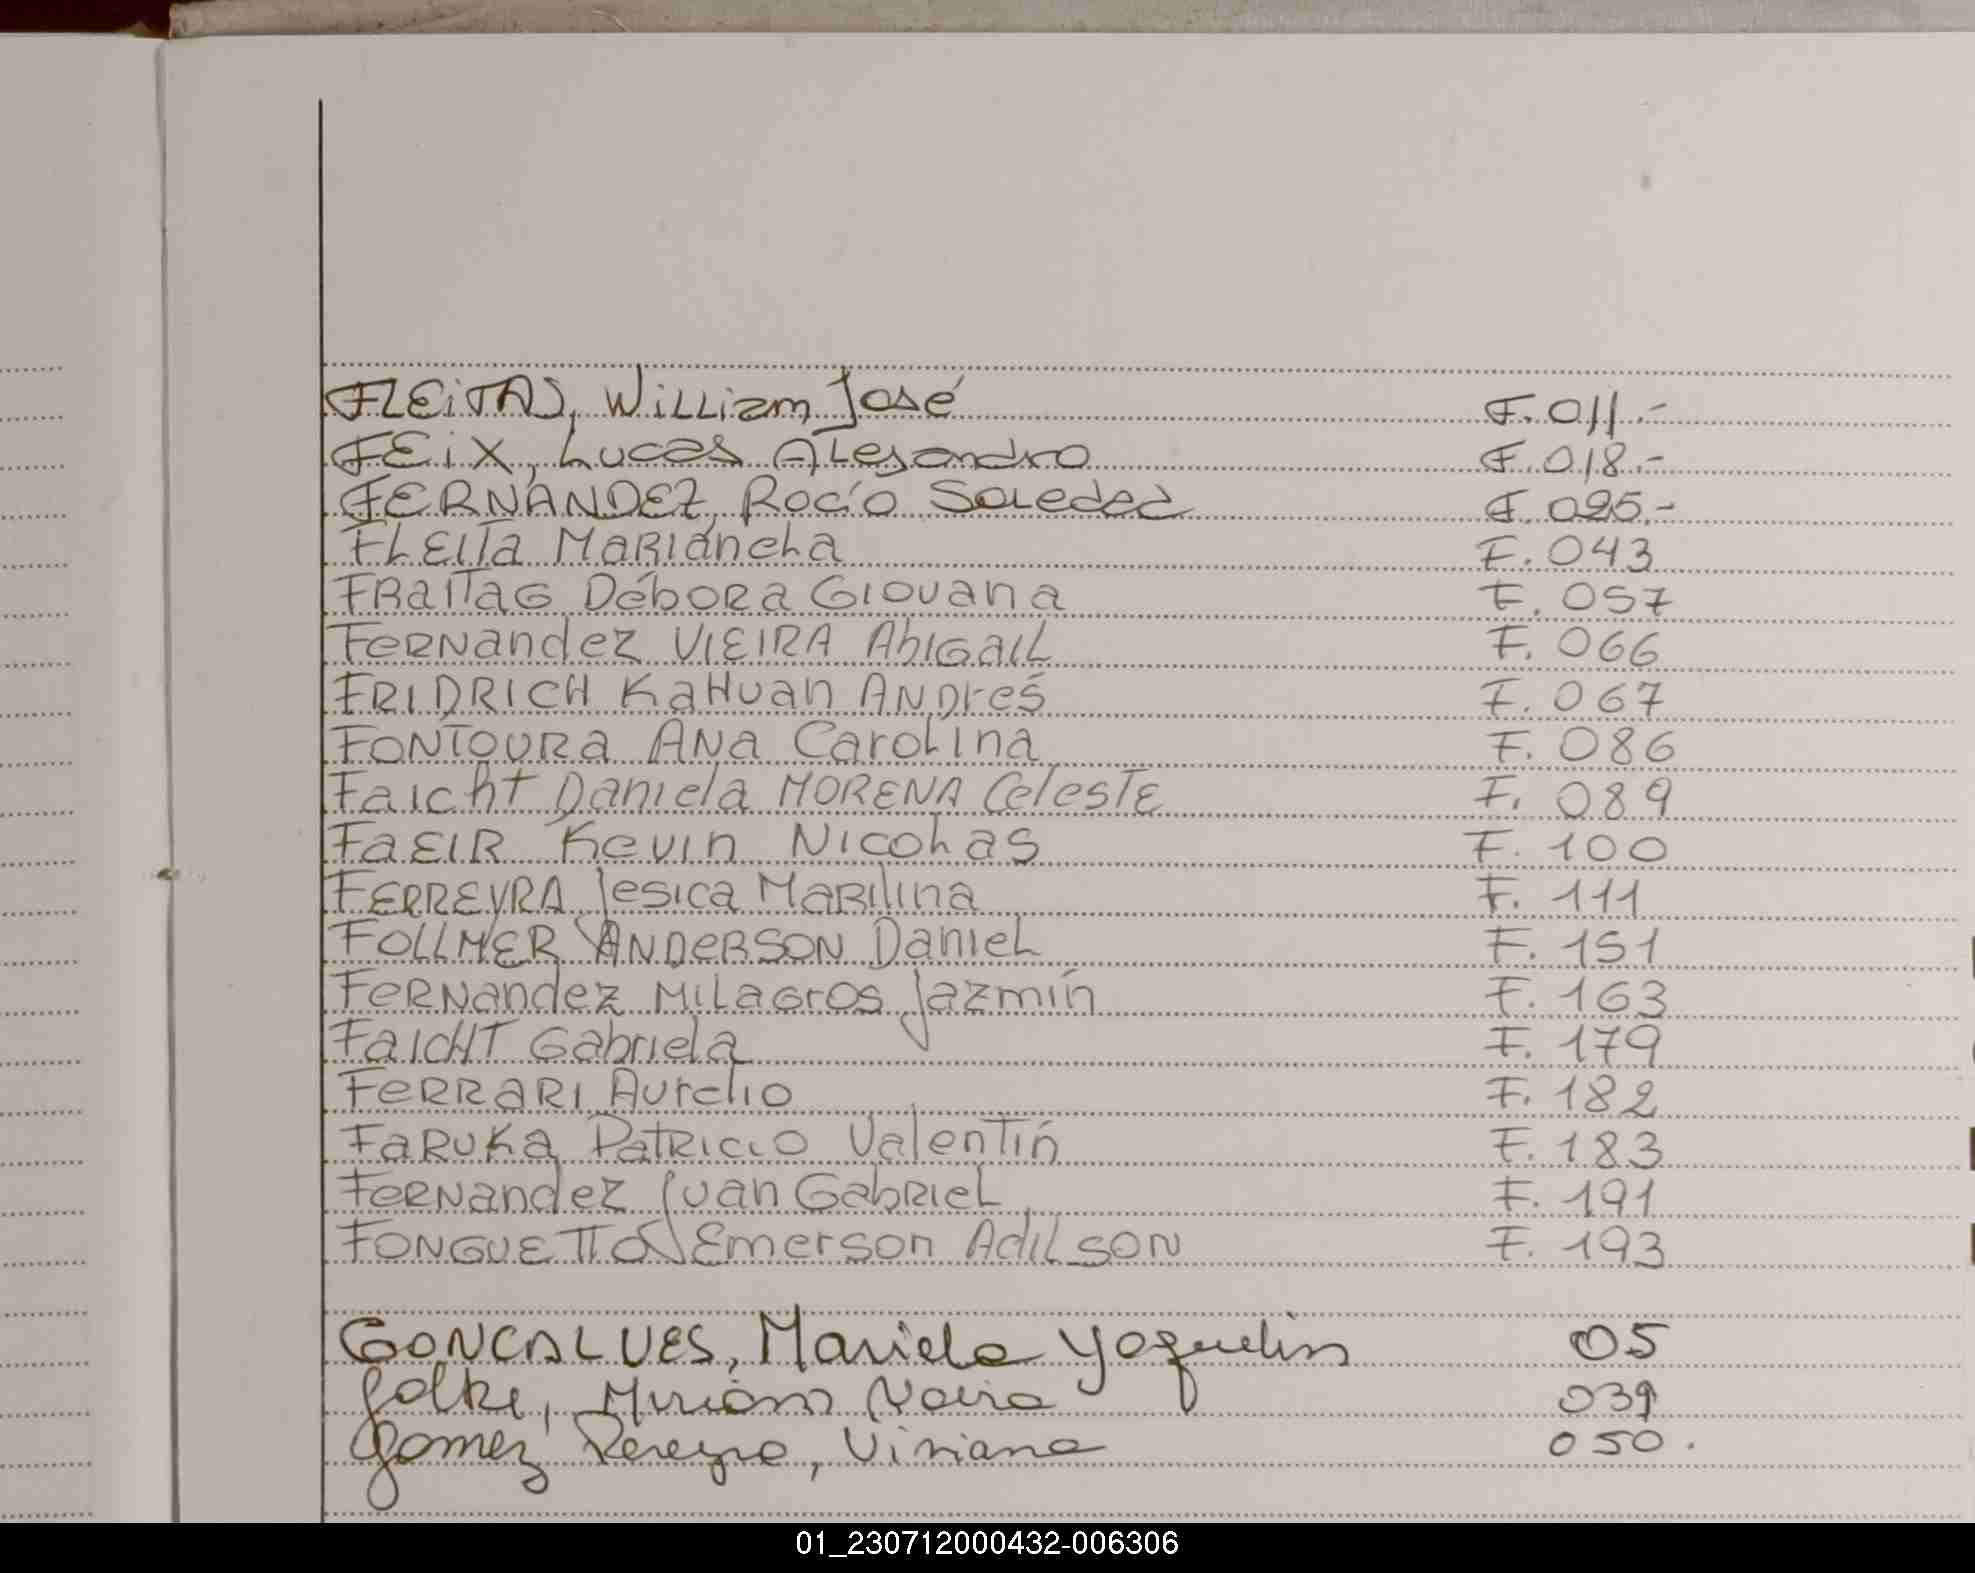 FLEiTAS, WiLLiam José F. 011.-
FEiX, Lucas ALejandro F. 018.-
FERNÁNDEZ, Rocío SoLedad F. 025.-
FLEITa MaRIaneLa F. 043
FRaITaG Débora GIOvana F. 057
FeRNandez VIEIRA AbIGaIL F. 066
FRIDRICH KaHuan ANDrés F. 067
FONTOURa ANa CaroLIna F. 086
FaIcht Daniela MORENA CelesTE F. 089
FaEIR Kevin NIcoLas F. 100
FERREYRA Jesica MaRilina F. 111
FOLLMER ANDeRSON DanieL F. 151
FeRNandez MiLaGros Jazmín F. 163
FaIcHT Gabriela F. 179
FeRRaRI Aurelio F. 182
FaRuKa PatRIcio ValenTín F. 183
FeRNandez Juan GabRIeL F. 191
FONGUETTO Emerson AdiLSON F. 193
GONCALVES, Mariela Yoquelin 05
Golke, Miriam Noira 039
Gomez Pereyra, Viviana 050.
01_230712000432-006306